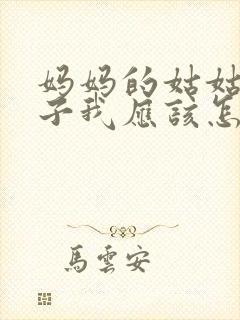 妈妈的姑姑
子我应该怎
馬雲安